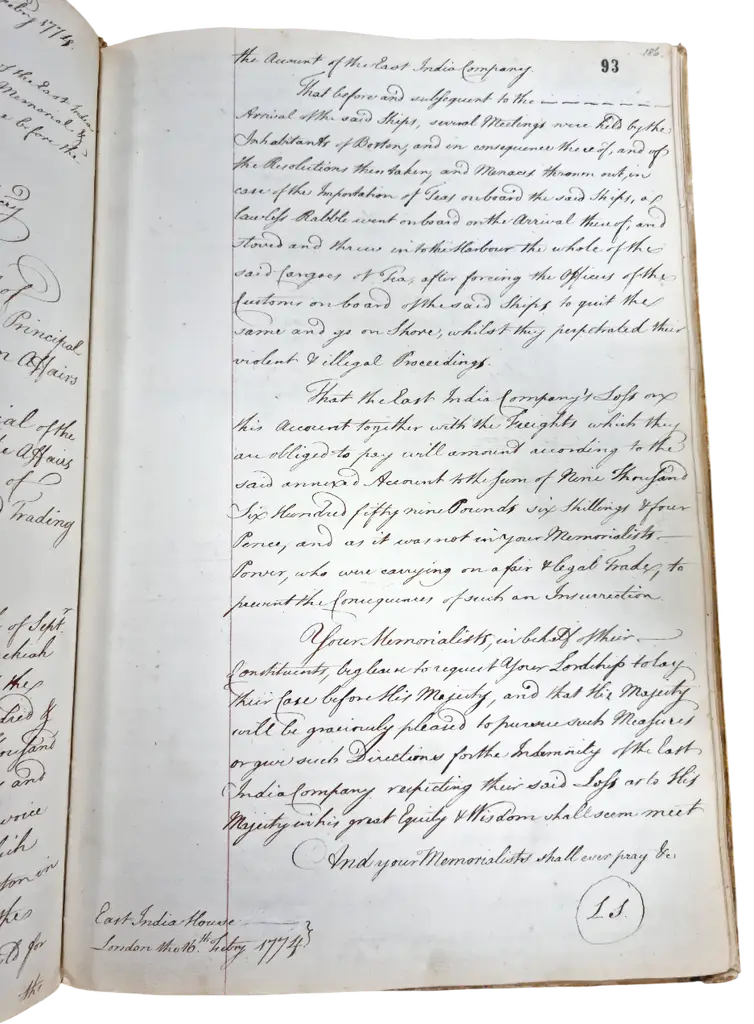 Febry 1774.
of the East India
Memorial &
before the
of
Principal
Affairs
ial of the
Affairs
of
Trading
of Septr.
the
and
voice
ton in
for
the
186.
93
the Account of the East India Company.
That before and subsequent to the
Arrival of the said Ships, several Meetings were held by the
Inhabitants of Boston, and in consequence thereof, and of
the Resolutions then taken, and Menaces thrown out, in
case of the Importation of Teas on board the said Ships, a
lawless Rabble went on board on the Arrival thereof, and
stoved and threw into the Harbour the whole of the
said Cargoes of Tea, after forcing the Officers of the
Customs on board of the said Ships to quit the
same and go on Shore, whilst they perpetrated their
violent & illegal Proceedings.
That the East India Company's Loss on
this Account together with the Freights which they
are obliged to pay will amount according to the
said annexed Account to the Sum of Nine Thousand
Six Hundred fifty nine Pounds six Shillings & four
Pence, and as it was not in your Memorialists
Power, who were carrying on a fair & legal Trade, to
prevent the Consequences of such an Insurrection
Your Memorialists, in behalf of their
Constituents, beg leave to request Your Lordship to lay
their Case before His Majesty, and that His Majesty
will be graciously pleased to pursue such Measures
or give such Directions for the Indemnity of the East
India Company respecting their said Loss as to His
Majesty in his great Equity & Wisdom shall seem meet
And your Memorialists shall ever pray &c
L S.
East India House
London the 16th. Febry. 1774.